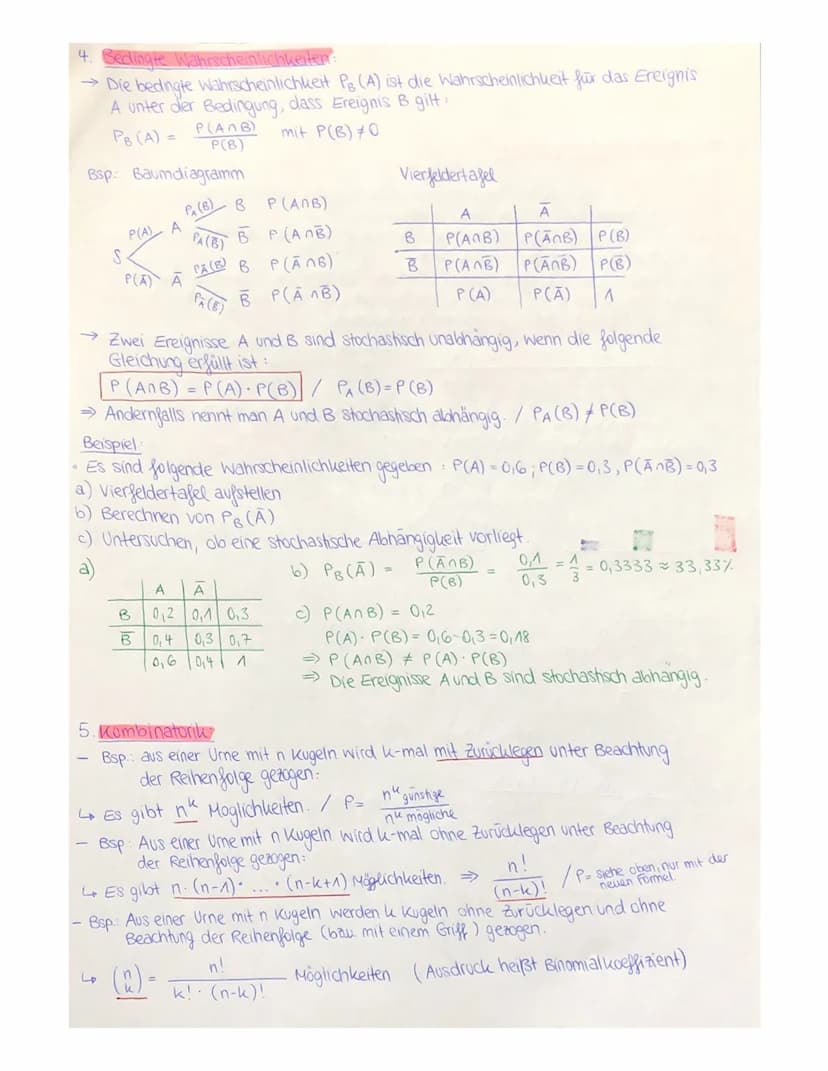 4. Bedingte Wahrscheinlichkeiten:
→ Die bedingte Wahrscheinlichkeit P_B(A) ist die Wahrscheinlichkeit für das Ereignis
A unter der Bedingung, dass Ereignis B gilt:
P_B(A) = P(A∩B)/P(B) mit P(B) ≠ 0
Bsp.: Baumdiagramm Vierfeldertafel
P_A(B) B P(A∩B)
P(A) A P_A(B̄) B̄ P(A∩B̄)
S
P(Ā) Ā P_Ā(B) B P(Ā∩B)
P_Ā(B̄) B̄ P(Ā∩B̄)
A Ā
B P(A∩B) P(Ā∩B) P(B)
B̄ P(A∩B̄) P(Ā∩B̄) P(B̄)
P(A) P(Ā) 1
→ Zwei Ereignisse A und B sind stochastisch unabhängig, wenn die folgende
Gleichung erfüllt ist:
P(A∩B) = P(A)·P(B) / P_A(B) = P(B)
⇒ Andernfalls nennt man A und B stochastisch abhängig. / P_A(B) ≠ P(B)
Beispiel:
• Es sind folgende Wahrscheinlichkeiten gegeben: P(A) = 0,6; P(B) = 0,3, P(Ā∩B̄) = 0,3
a) Vierfeldertafel aufstellen
b) Berechnen von P_B(Ā)
c) Untersuchen, ob eine stochastische Abhängigkeit vorliegt.
a)
A Ā
B 0,2 0,1 0,3
B̄ 0,4 0,3 0,7
0,6 0,4 1
b) P_B(Ā) = P(Ā∩B)/P(B) = 0,1/0,3 = 1/3 = 0,3333 ≈ 33,33%
c) P(A∩B) = 0,2
P(A)·P(B) = 0,6·0,3 = 0,18
⇒ P(A∩B) ≠ P(A)·P(B)
⇒ Die Ereignisse A und B sind stochastisch abhängig.
5. Kombinatorik
– Bsp.: aus einer Urne mit n Kugeln wird k-mal mit Zurücklegen unter Beachtung
der Reihenfolge gezogen:
↳ Es gibt n^k Möglichkeiten. / P = n^k günstige / n^k mögliche
– Bsp: Aus einer Urne mit n Kugeln wird k-mal ohne Zurücklegen unter Beachtung
der Reihenfolge gezogen:
↳ Es gibt n·(n-1)·...·(n-k+1) Möglichkeiten. ⇒ n!/(n-k)! / P = siehe oben, nur mit der
neuen Formel.
– Bsp.: Aus einer Urne mit n Kugeln werden k Kugeln ohne Zurücklegen und ohne
Beachtung der Reihenfolge (bzw mit einem Griff) gezogen.
↳ (n k) = n!/(k!·(n-k)!) Möglichkeiten (Ausdruck heißt Binomialkoeffizient)